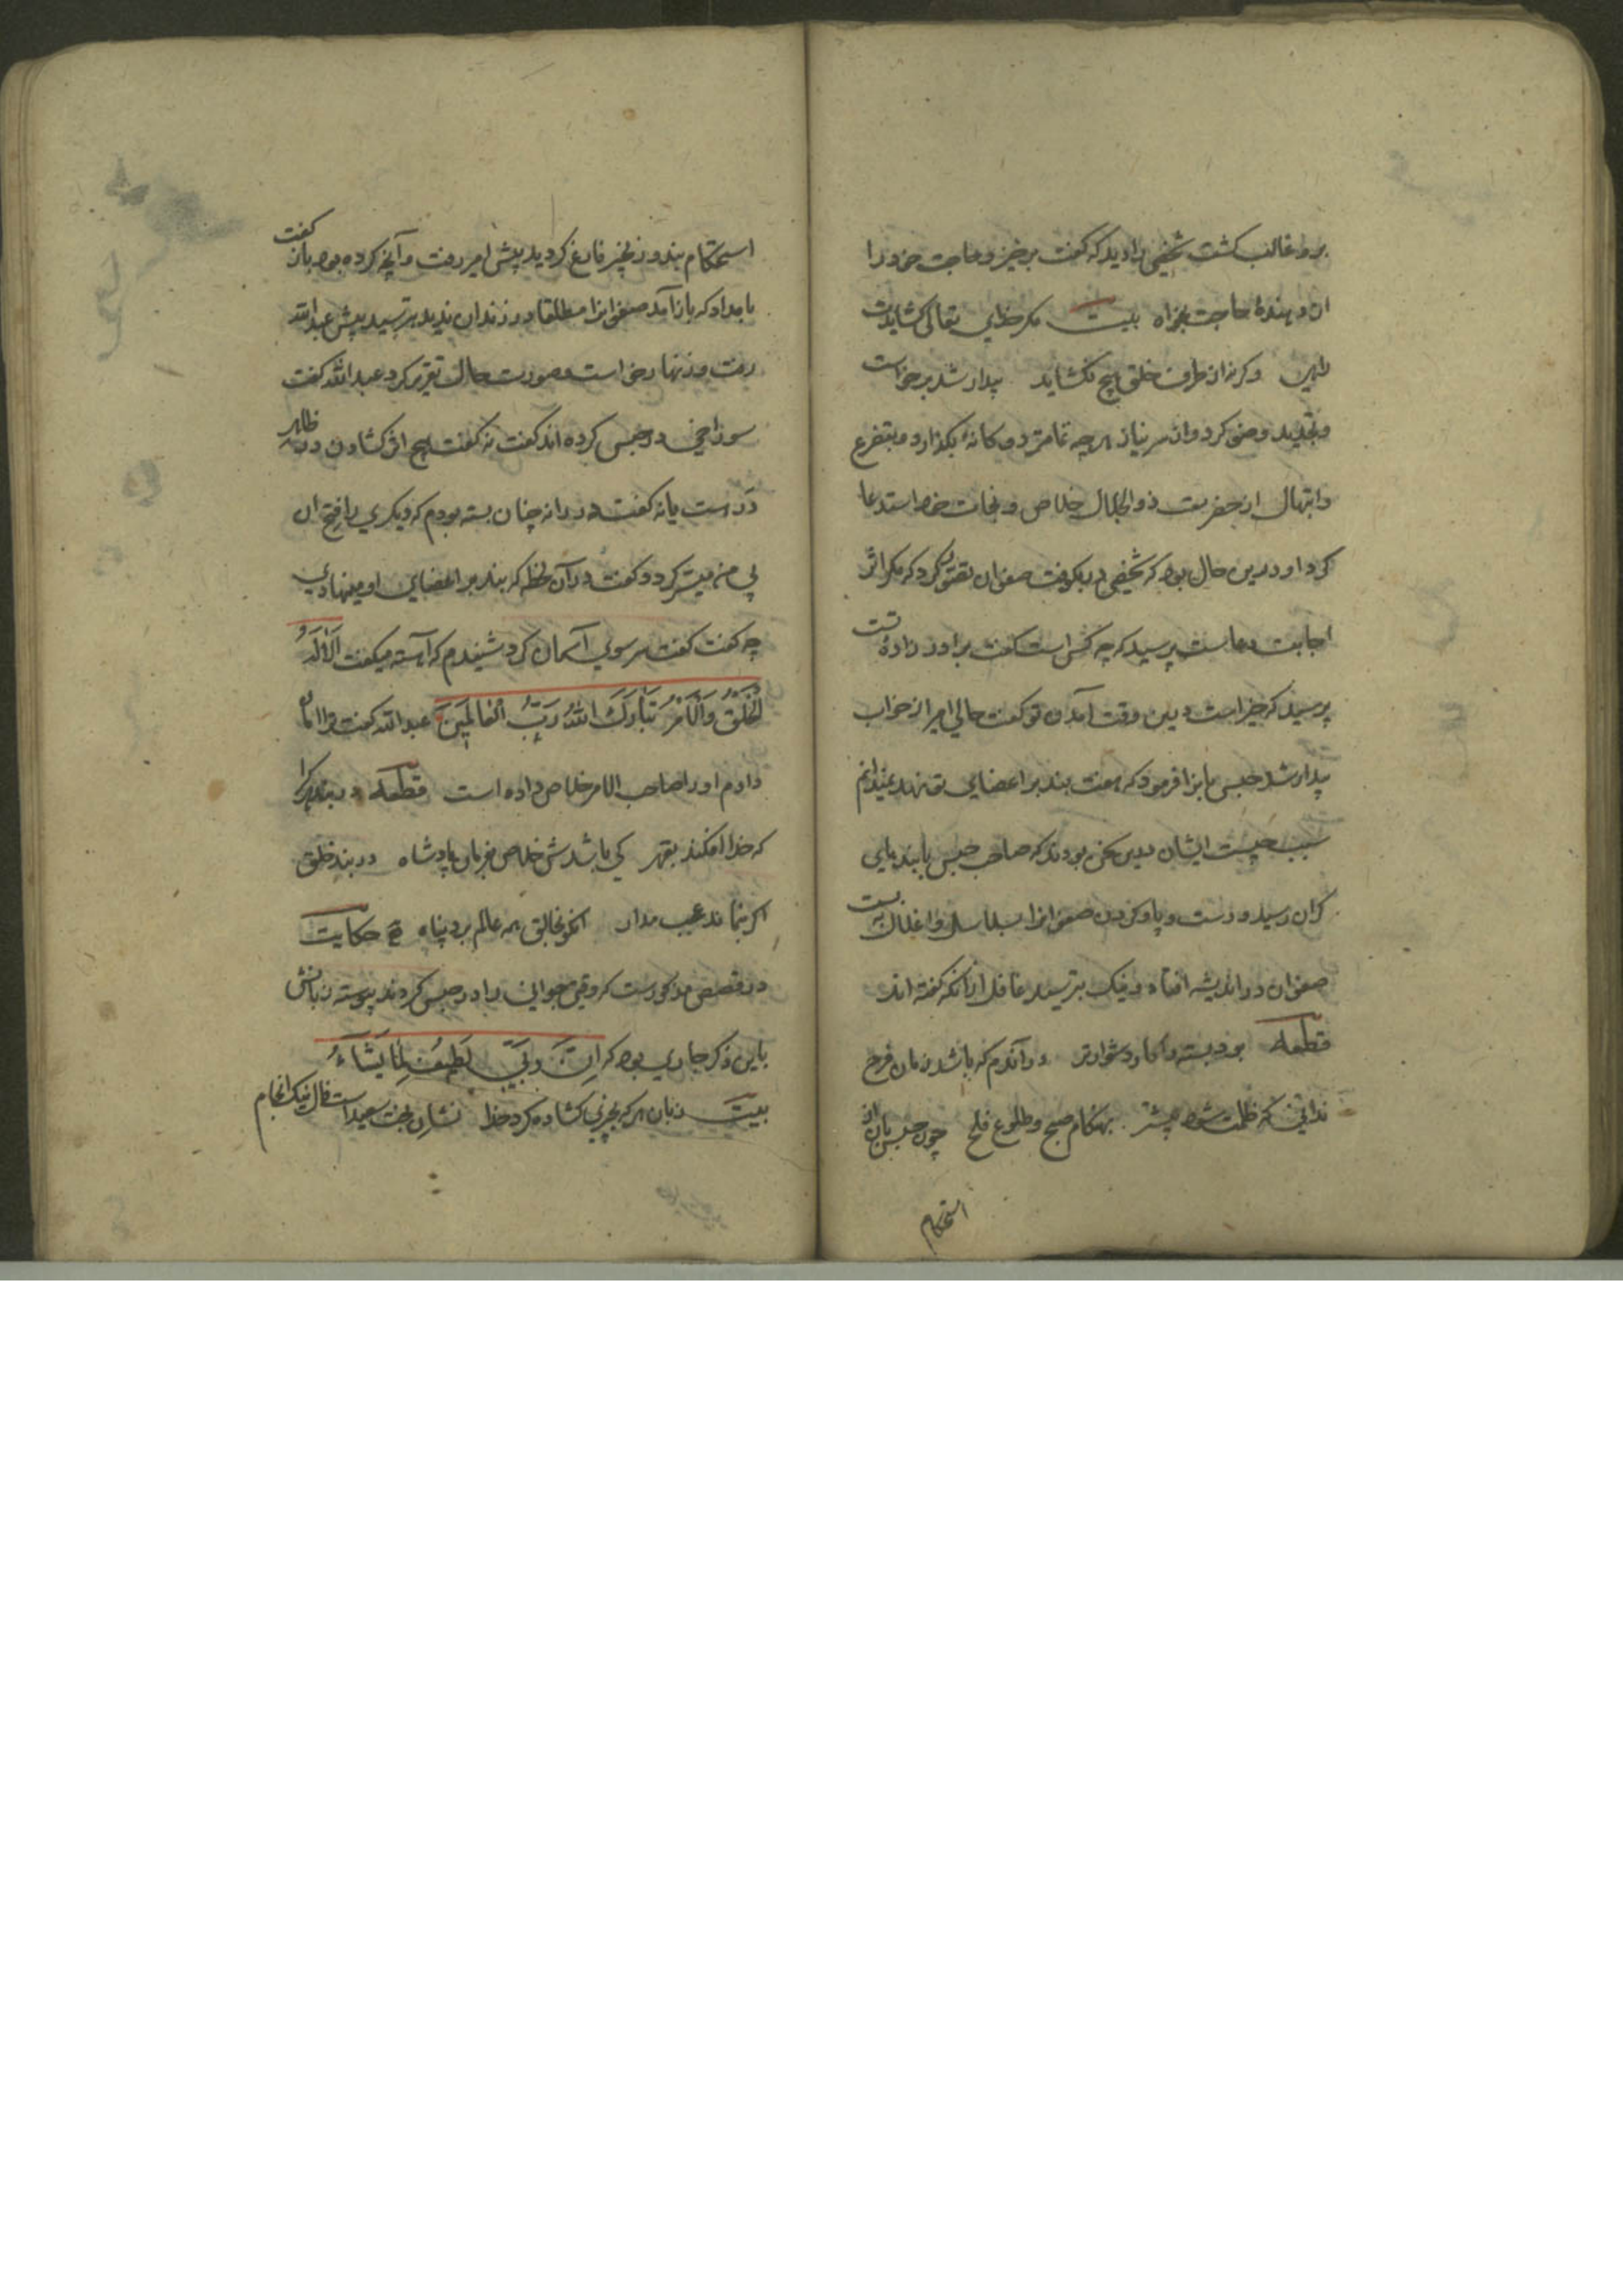 برو غالب کشت شخصی را دید که گفت برخیز و حاجت خود را
از دهندهٔ حاجت بخواه بیت مکر خدای تعالی کشایدت
طریق وکرنه از طرف خلق هیچ نکشاید بیدار شد برخواست
و تجدید وضو کرد و از سر نیاز هرچه تمامتر دوکانهٔ بکذارد و بتضرع
و ابتهال از حضرت ذوالجلال خلاص و نجات خود استدعا
کرد او درین حال بود که شخصی در بکوفت صفوان تصور کرد که مکر اثر
اجابت دعاست پرسید که چه کس است گفت برادر زادهٔ تست
پرسید که خیر است درین وقت آمدن تو گفت حالی امیر از خواب
بیدار شد حبس بانرا فرمود که هفت بند بر اعضای تو نهد نمیدانم
سبب چیست ایشان درین سخن بودند که صاحب حبس با بندهای
کران رسید و دست و پا و کردن صفوانرا بسلاسل و اغلال بست
صفوان در اندیشه افتاد و نیک بترسید غافل ازانکه گفته اند
قطعه بود بسته را کار دشوارتر درآندم که باشد زمان فرح
ندانی که ظلمت شود بیشتر بهنکام صبح و طلوع فلح چون حبس بان از
استحکام
استحکام بند و زنجیر فارغ کردید پیش امیر رفت و آنچه کرده بود باز گفت
بامداد که باز آمد صفوانرا مطلقا در زندان ندید بترسید پیش عبدالله
رفت و زنهار خواست و صورت حال تقریر کرد عبدالله گفت
سوراخی در حبس کرده اند گفت نه گفت هیچ اثر کشادن در ظاهر
در است یا نه گفت در را نه چنان بسته بودم که دیکری را فتح آن
بی من میسر کردد گفت درآن لحظه که بند بر اعضای او مینهادی
چه گفت گفت سر سوی آسمان کرد شنیدم که آهسته میگفت اَلاَ لَهُ
الْخَلْقُ وَالْاَمْرُ تَبَارَكَ اللهُ رَبُّ الْعَالَمِینَ عبدالله گفت ترا امان
دادم او را صاحب الامر خلاص داده است قطعه در بند هرکرا
که خدا افکند بقهر کی باشدش خلاص بفرمان پادشاه در بند خلق
اکر بنماند عجب مدار آنکو بخالق همه عالم برد پناه حکایت
در قصص مذکورست که وقتی جوانی را در حبس کردند پیوسته زبانش
باین ذکر جاری بود که اِنَّ رَبِّی لَطِیفٌ لِمَا یَشَاءُ
بیت زبان هرکه بچیزی کشاده کرد خدا نشان بخت سعید است فال نیک انجام